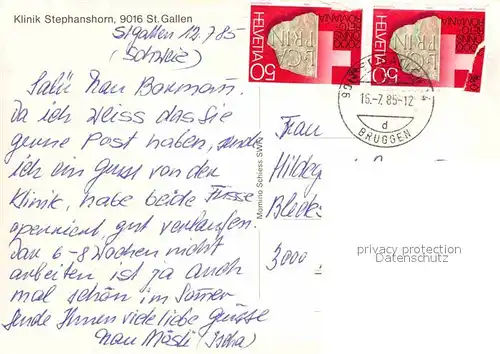 Klinik Stephanshorn, 9016 St. Gallen
St gallen 12.7.85
(Schweiz)
Salü Frau Boxmann.
Da ich weiss das Sie
gerne Post haben, sende
ich ein Gruss von der
Klinik, habe beide Füsse
operiert gut verlaufen.
Kan 6-8 Wochen nicht
arbeiten ist ja auch
mal schön im Somer
Sende Ihnen viele liebe Grüsse
Frau Mösli
HELVETIA 50
LIGA
TRIN
2000
RETOROMANIA
HELVETIA 50
LIGA
TRIN
2000
RETOROMANIA
16.-7.85-12
d
BRUGGEN
Momino Schiess SWB
Frau
3000
privacy protection
Datenschutz